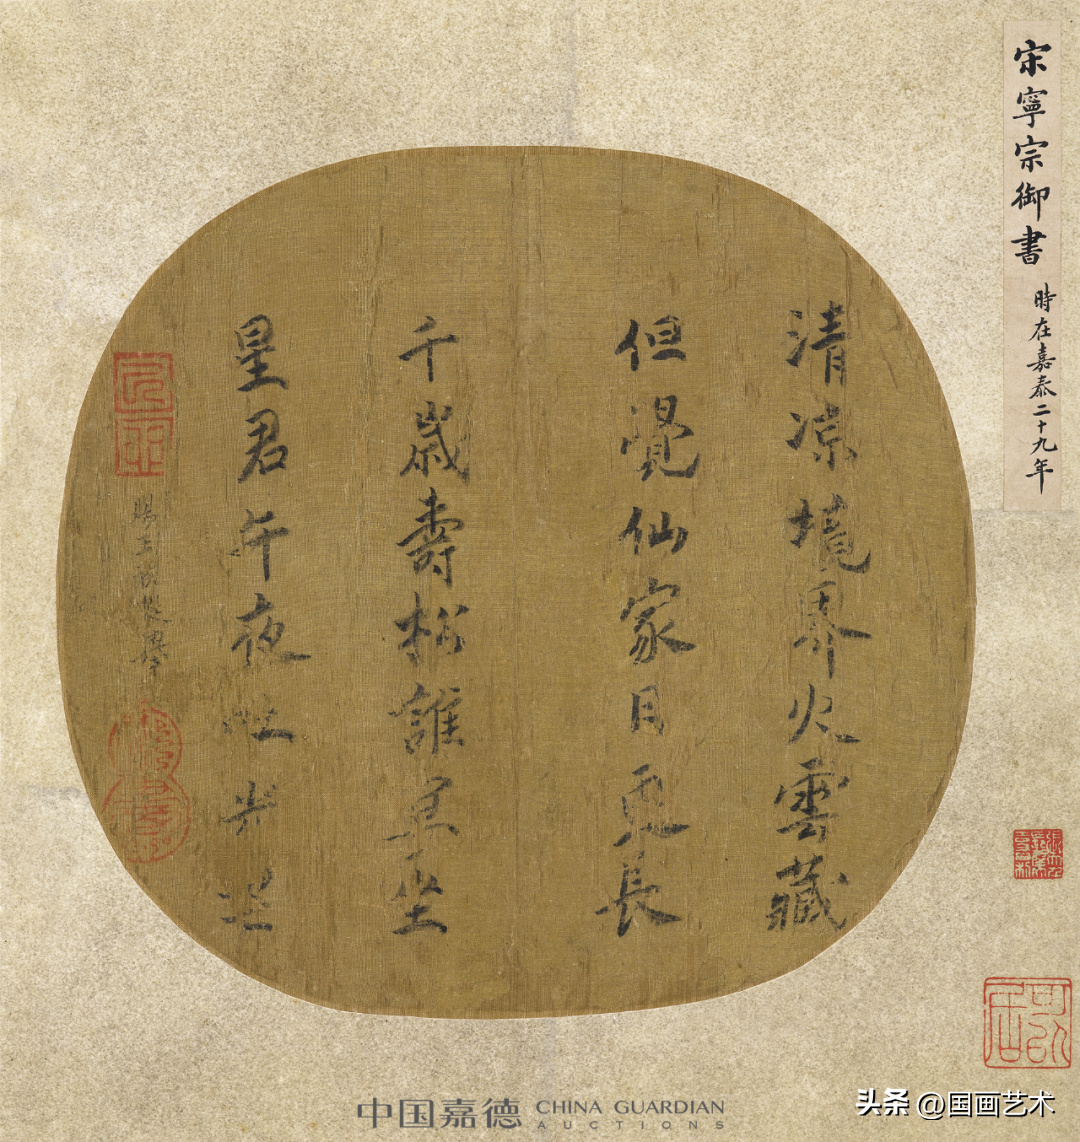 宋寧宗御書
時在嘉泰二十九年
清凉境界火雲藏
但覺仙家日更長
千歲壽松誰坐
星君午夜吐光芒
賜王
中国嘉德 CHINA GUARDIAN
AUCTIONS
头条 @国画艺术